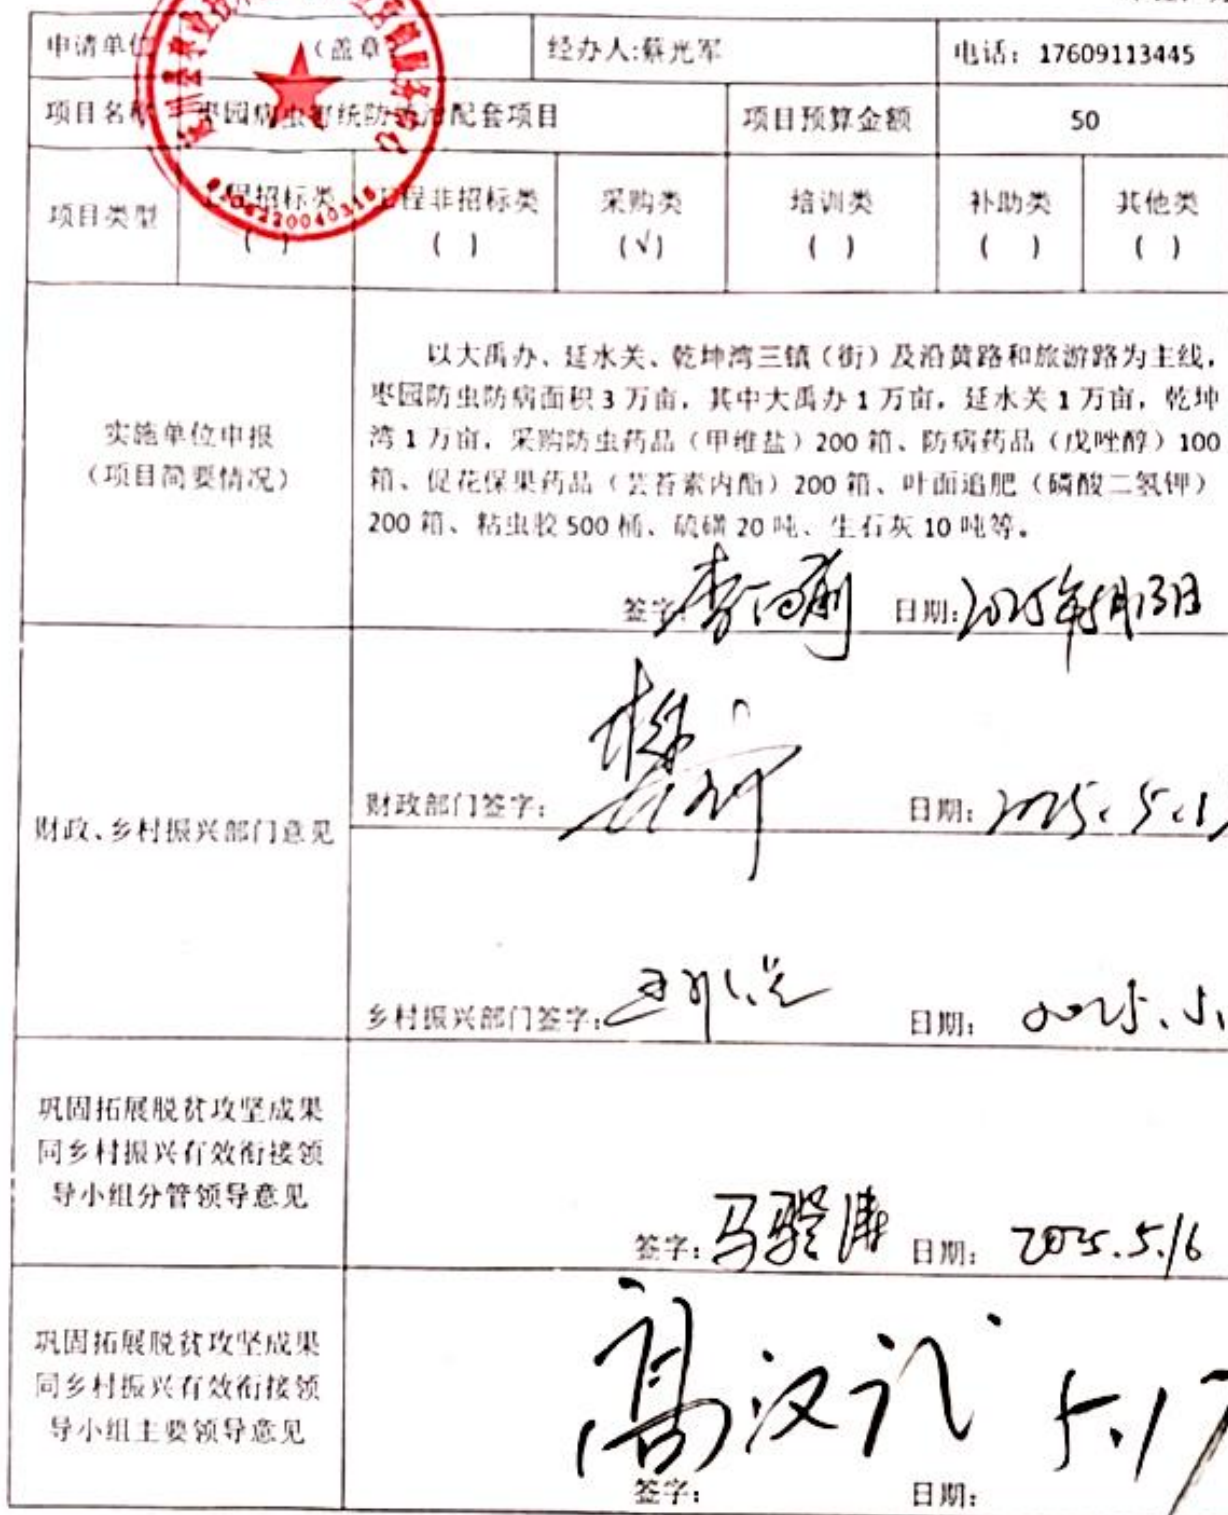 申请单位 （盖章 经办人:蔡光军 电话：17609113445
项目名称 枣园病虫害统防统治配套项目 项目预算金额 50
项目类型 工程招标类 工程非招标类 采购类 培训类 补助类 其他类
( ) ( ) (√) ( ) ( ) ( )
以大禹办、延水关、乾坤湾三镇（街）及沿黄路和旅游路为主线，
枣园防虫防病面积 3 万亩，其中大禹办 1 万亩，延水关 1 万亩，乾坤
湾 1 万亩，采购防虫药品（甲维盐）200 箱、防病药品（戊唑醇）100
箱、促花保果药品（芸苔素内酯）200 箱、叶面追肥（磷酸二氢钾）
200 箱、粘虫胶 500 桶、硫磺 20 吨、生石灰 10 吨等。
实施单位申报
（项目简要情况）
签字： 日期：2025年5月13日
财政、乡村振兴部门意见
财政部门签字： 日期：2025.5.1
乡村振兴部门签字： 日期： 2025.5.
巩固拓展脱贫攻坚成果
同乡村振兴有效衔接领
导小组分管领导意见
签字：马 涛 日期： 2025.5.16
巩固拓展脱贫攻坚成果
同乡村振兴有效衔接领
导小组主要领导意见
高汉 5.17
签字： 日期：